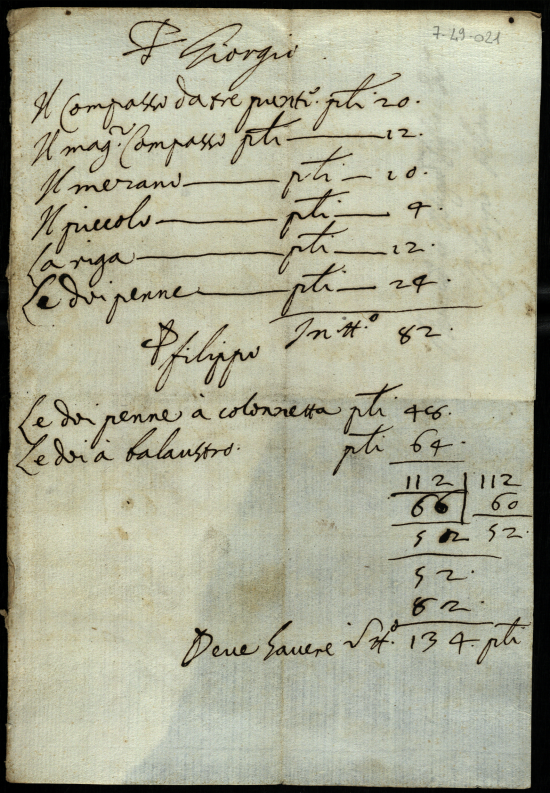 7-49-021
P Giorgio
Il Compasso da tre punti pti 20.
Il mag.r Compasso pti 12.
Il mezano pti 20.
Il piccolo pti 4
La riga pti 12.
Le doi penne pti 24
In tt.o 82.
P filippo
Le doi penne à colonnetta pti 48.
Le doi à balaustro. pti 64.
112 112
60
52 52.
52.
82.
Deve havere tt.o 134. pti